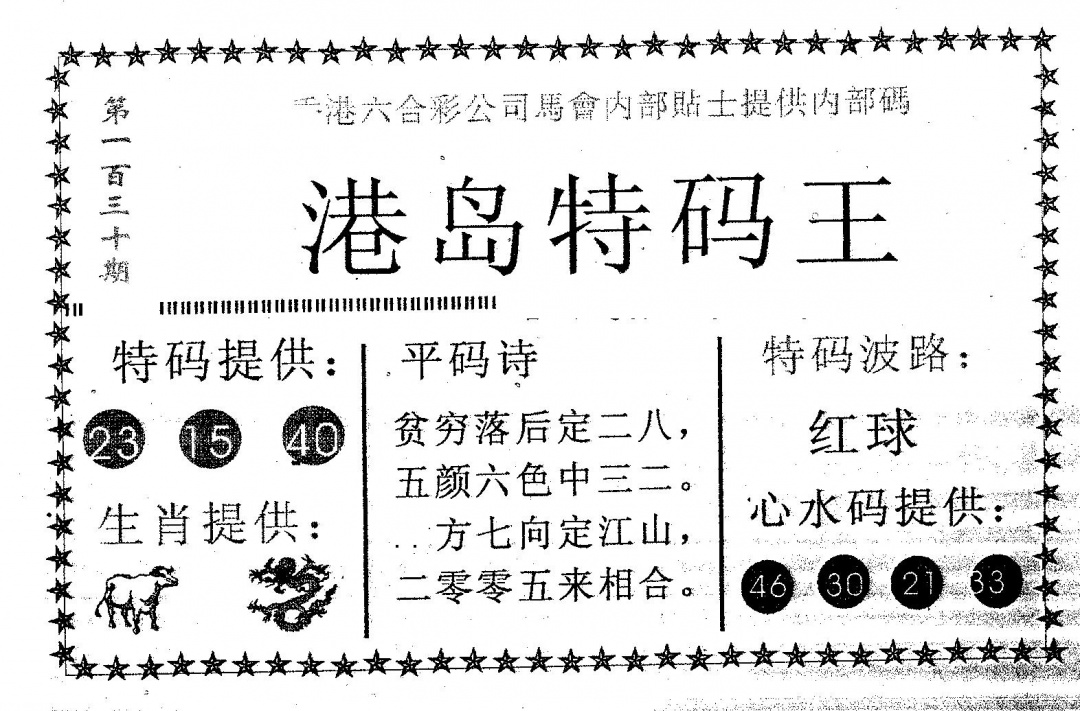 第一百三十期
香港六合彩公司馬會内部貼士提供内部碼
港岛特码王
特码提供：
23 15 40
生肖提供：
平码诗
贫穷落后定二八，
五颜六色中三二。
方七向定江山，
二零零五来相合。
特码波路：
红球
心水码提供：
46 30 21 33